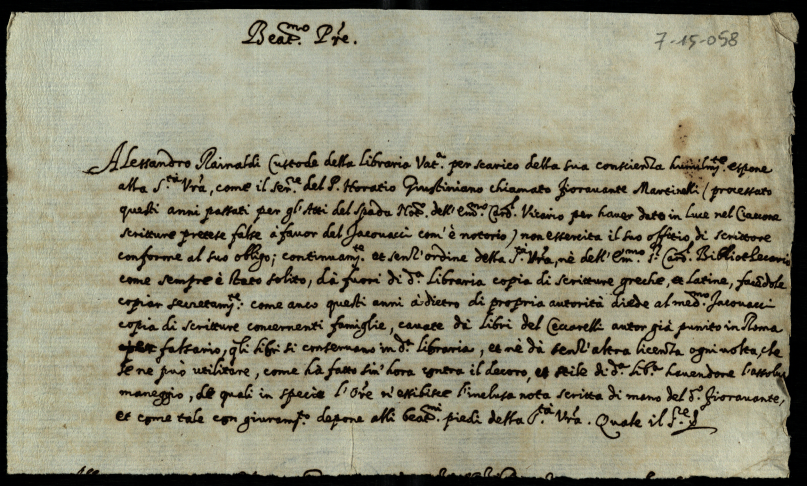 Beat.mo Pr̃e.
7-15-058
Alessandro Rainaldi Custode della libraria Vat.a per scarico della sua conscienza humilm.te espone
alla S.tà Vr̃a, come il ser.re del P. Horatio Giustiniano chiamato Fioravante Martinelli (processato
questi anni passati per gl'Atti del Spada Not.o dell'Em.mo Card. Vicario per haver dato in luce nel Ciaccone
scritture pretese false à favor del Jacouacci com'è notorio) non essercita il suo offitio di scrittore
conforme al suo obligo; continuam.te et senz'ordine della S.tà Vr̃a, nè dell'Em.mo S.r Card. Bibliothecario
come sempre è stato solito, dà fuori di d.a libraria copia di scritture greche, et latine, facẽdole
copiar secretam.te come anco questi anni à dietro di propria autorità diede al med.mo Jacouacci
copia di scritture concernenti famiglie, cavate dà libri del Ceccarelli autor già punito in Roma
falsario, q̃li libri si conservano in d.a libraria, et nè dà senz'altra licenza ogni volta, che
se ne può utilitare, come hà fatto sin'hora contra il decoro, et stile di d.a lib.a havendone l'assoluto
maneggio, de quali in specie l'Or̃e n'essibisce l'inclusa nota scritta di mano del d.o Fioravante,
et come tale con giuram.to depone alli beat.mi piedi della S.tà Vr̃a. Quale il S.re